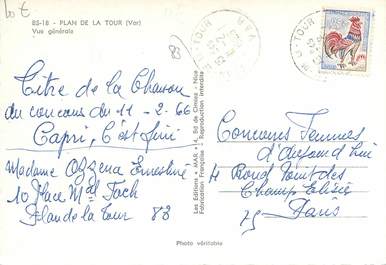 85-18 - PLAN DE LA TOUR (Var)
Vue générale
83
Titre de la Chanson
du concours du 11 - 2 - 66
Capri, C'est fini
Madame Ozzena Ernestine
10 Place Mal Foch
Plan de la Tour 83
Les Editions "MAR" - Nice
Fabrication Française - Reproduction interdite
Concours Femmes
d'Aujourd hui
4 Rond Point des
Champ Elisée
75 Paris
Photo véritable